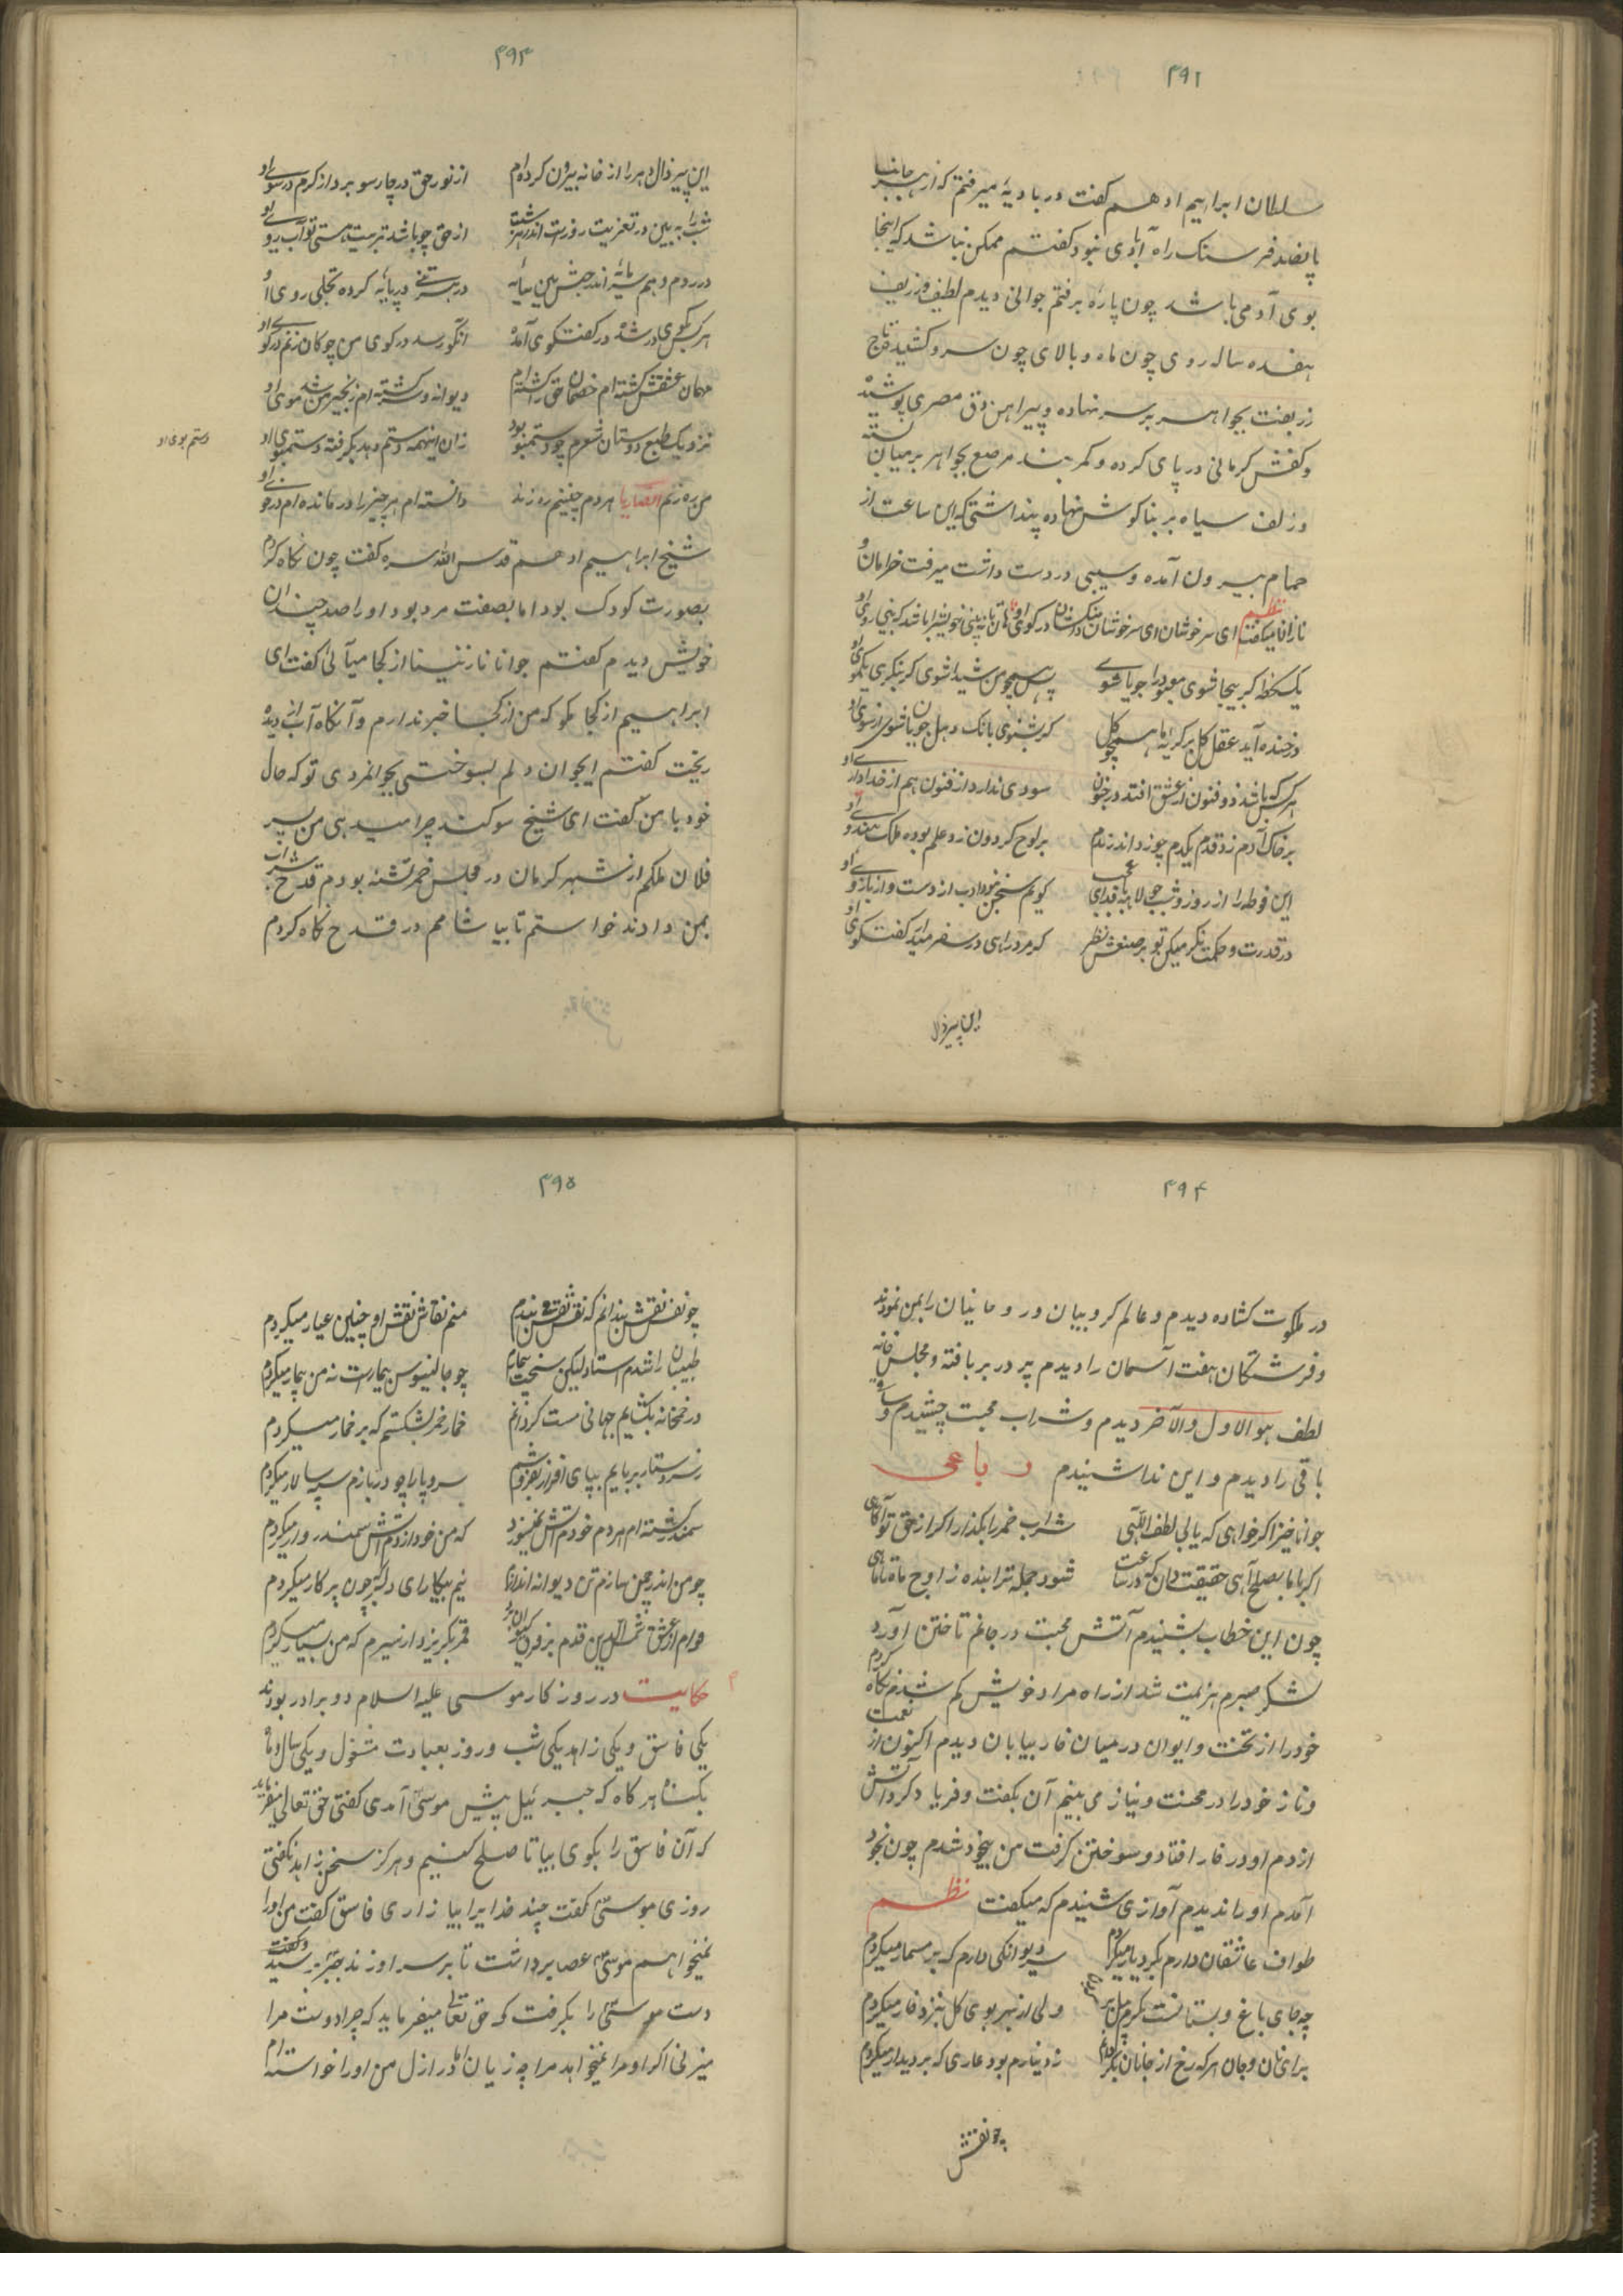 ۴۹۲
سلطان ابراهیم ادهم گفت در بادیهٔ میرفتم که از هر جانبها
پانصد فرسنک راه آبادی نبود گفتم ممکن نباشد که اینجا
بوی آدمی باشد چون پارهٔ برفتم جوانی دیدم لطیف و زریف
هفده ساله روی چون ماه و بالای چون سرو کشیده تاج
زربفت بجواهر بر سر نهاده و پیراهن دق مصری پوشیده
و کفش کرمانی در پای کرده و کمربند مرصع بجواهر بر میان بسته
و زلف سیاه بر بناکوش نهاده پنداشتی که این ساعت از
حمام بیرون آمده و سیبی در دست داشت میرفت خرامان و
نازان میکفت نظم ای سرخوشان ای سرخوشان در کوی او
یکلحظه کر بیجا شوی معبود را جویا شوی همچو من شیدا شوی کر بنکری یکموی او
در خنده آید عقل کل بر کریه ما همچو کل کر بشنوی بانک دهل جویان شوی از سوی او
هر کس که باشد ذو فنون از عشق افتد در جنون سودی ندارد از فنون هم از خدا داروی او
بر خاک آدم زد قدم یکدم چو زد اندر ندم بر لوح کردون زد علم بوده ملک هندوی او
این فوطه را از روز و شب جولاهه بافد ای عجب کویم سخن نبود ادب از دست و از بازوی او
در قدرت و حکمت نکر میکن تو بر صنعش نظر که مرد راهی در سفر میاید کفتکوی او
این پیر ذال
۴۹۳
این پیر ذال دهر را از خانه بیرون کرده‌ام از نور حق در چار سو بر داز کرم در سوی او
شب را به بین در تعزیت روز است اندر از حق چو باشد تربیت هستی تو آب روی او
در هر سری در پایهٔ کرده تجلی روی او
هر کس بکوی در شده در کفتکوی آمده انکو رسد در کوی من چوکان زنم در کوی او
مهمان عشقش کشته‌ام خصمان حق را کشته‌ام دیوانه و سرکشته‌ام زنجیر من شد موی او
نزدیک طبع دوستان شعرم چو دستنبو بود زان اینهمه دستم دهد بکرفته دستنبوی او
دستم بوی او
من ره زنم الصاریا هر دم چنینم ره زند دانسته‌ام هر چیز را در مانده‌ام در خوی او
شیخ ابراهیم ادهم قدس الله سره کفت چون نکاه کردم
بصورت کودک بود اما بصفت مرد بود او را صد چندان
خویش دیدم کفتم جوانا نازنینا از کجا میآئی کفت ای
ابراهیم از کجا مکو که من از کجا خبر ندارم و آنکاه آب از دیده
ریخت کفتم ایجوان دلم بسوختی بجوانمردی تو که حال
خود با من کفت ای شیخ سوکند چرا میدهی من پسر
فلان ملکم از شهر کرمان در مجلس خمر نشسته بودم قدح شراب
بمن دادند خواستم تا بیاشامم در قدح نکاه کردم
۴۹۴
در ملکوت کشاده دیدم و عالم کروبیان و روحانیان را بمن نمودند
و فرشتکان هفت آسمان را دیدم پر در پر بافته و مجلس خانه
لطف هو الاول والآخر دیدم و شراب محبت چشیدم و ساقی
باقی را دیدم و این ندا شنیدم رباعی
جوانا خیز اکر خواهی که یابی لطف اللهی شراب خمر را بکذار اکر از حق تو آکاهی
اکر با ما بصلح آیی حقیقت دان که در ساعت شود جمله ترا بنده ز اوج ماه تا ماهی
چون این خطاب بشنیدم آتش محبت در جانم تاختن آورد
لشکر صبرم هزیمت شد از راه مراد خویش کم شدم نکاه کردم
خود را از تخت و ایوان در میان خار بیابان دیدم اکنون از نعمت
و ناز خود را در محنت و نیاز می بینم آن بکفت و فریاد کرد آتش
از دم او در خار افتاد و سوختن کرفت من بیخود شدم چون بخود
آمدم او را ندیدم آوازی شنیدم که میکفت نظم
طواف عاشقان دارم بکرد یار میکردم دیوانکی دارم که بر مسمار میکردم
چه جای باغ و بستانست ولی از بهر بوی کل بنزد خار میکردم
برای نان و جان هر که رخ از جانان ز دینارم بود عاری که بر دیدار میکردم
چو نقش
۴۹۵
چو نقش نقش بندانم که نقش نقش می بندم منم نقاش نقش او چنین عیار میکردم
طبیبان را شدم استاد لیکن سخت بیمارم چو جالینوس بیمارست نه من بیمار میکردم
در خمخانه بکشایم جهانی مست کردانم خمار خمر بشکستم که بر خمار میکردم
ز سر دستار بربایم بپای افزار بفروشم سر و پا را چو دربازم سپه سالار میکردم
سمندر کشته‌ام هر دم خودم آتش نمیسوزد که من خود از دم آتش سمندروار میکردم
چو من اندر چمن سازم تن دیوانه اندازم نیم بیکار ای دلبر چون پرکار میکردم
قدم بیرون قمر بکریزد از سیرم که من بسیار میکردم
حکایت در روزکار موسی علیه السلام دو برادر بودند
یکی فاسق و یکی زاهد یکی شب و روز بعبادت مشغول و یکی سال و ماه
بکناه هر کاه که جبرئیل پیش موسی آمدی کفتی حق تعالی میفرماید
که آن فاسق را بکوی بیا تا صلح کنیم و هرکز سخن زاهد نکفتی
روزی موسی کفت چند خدایرا بیازاری فاسق کفت من او را
نمیخواهم موسی عصا برداشت تا بر سر او زند جبرئیل رسید و کفت
دست موسی را بکرفت که حق تعالی میفرماید که چرا دوست مرا
میزنی اکر او مرا نمیخواهد مرا چه زیان اما در ازل من او را خواسته‌ام